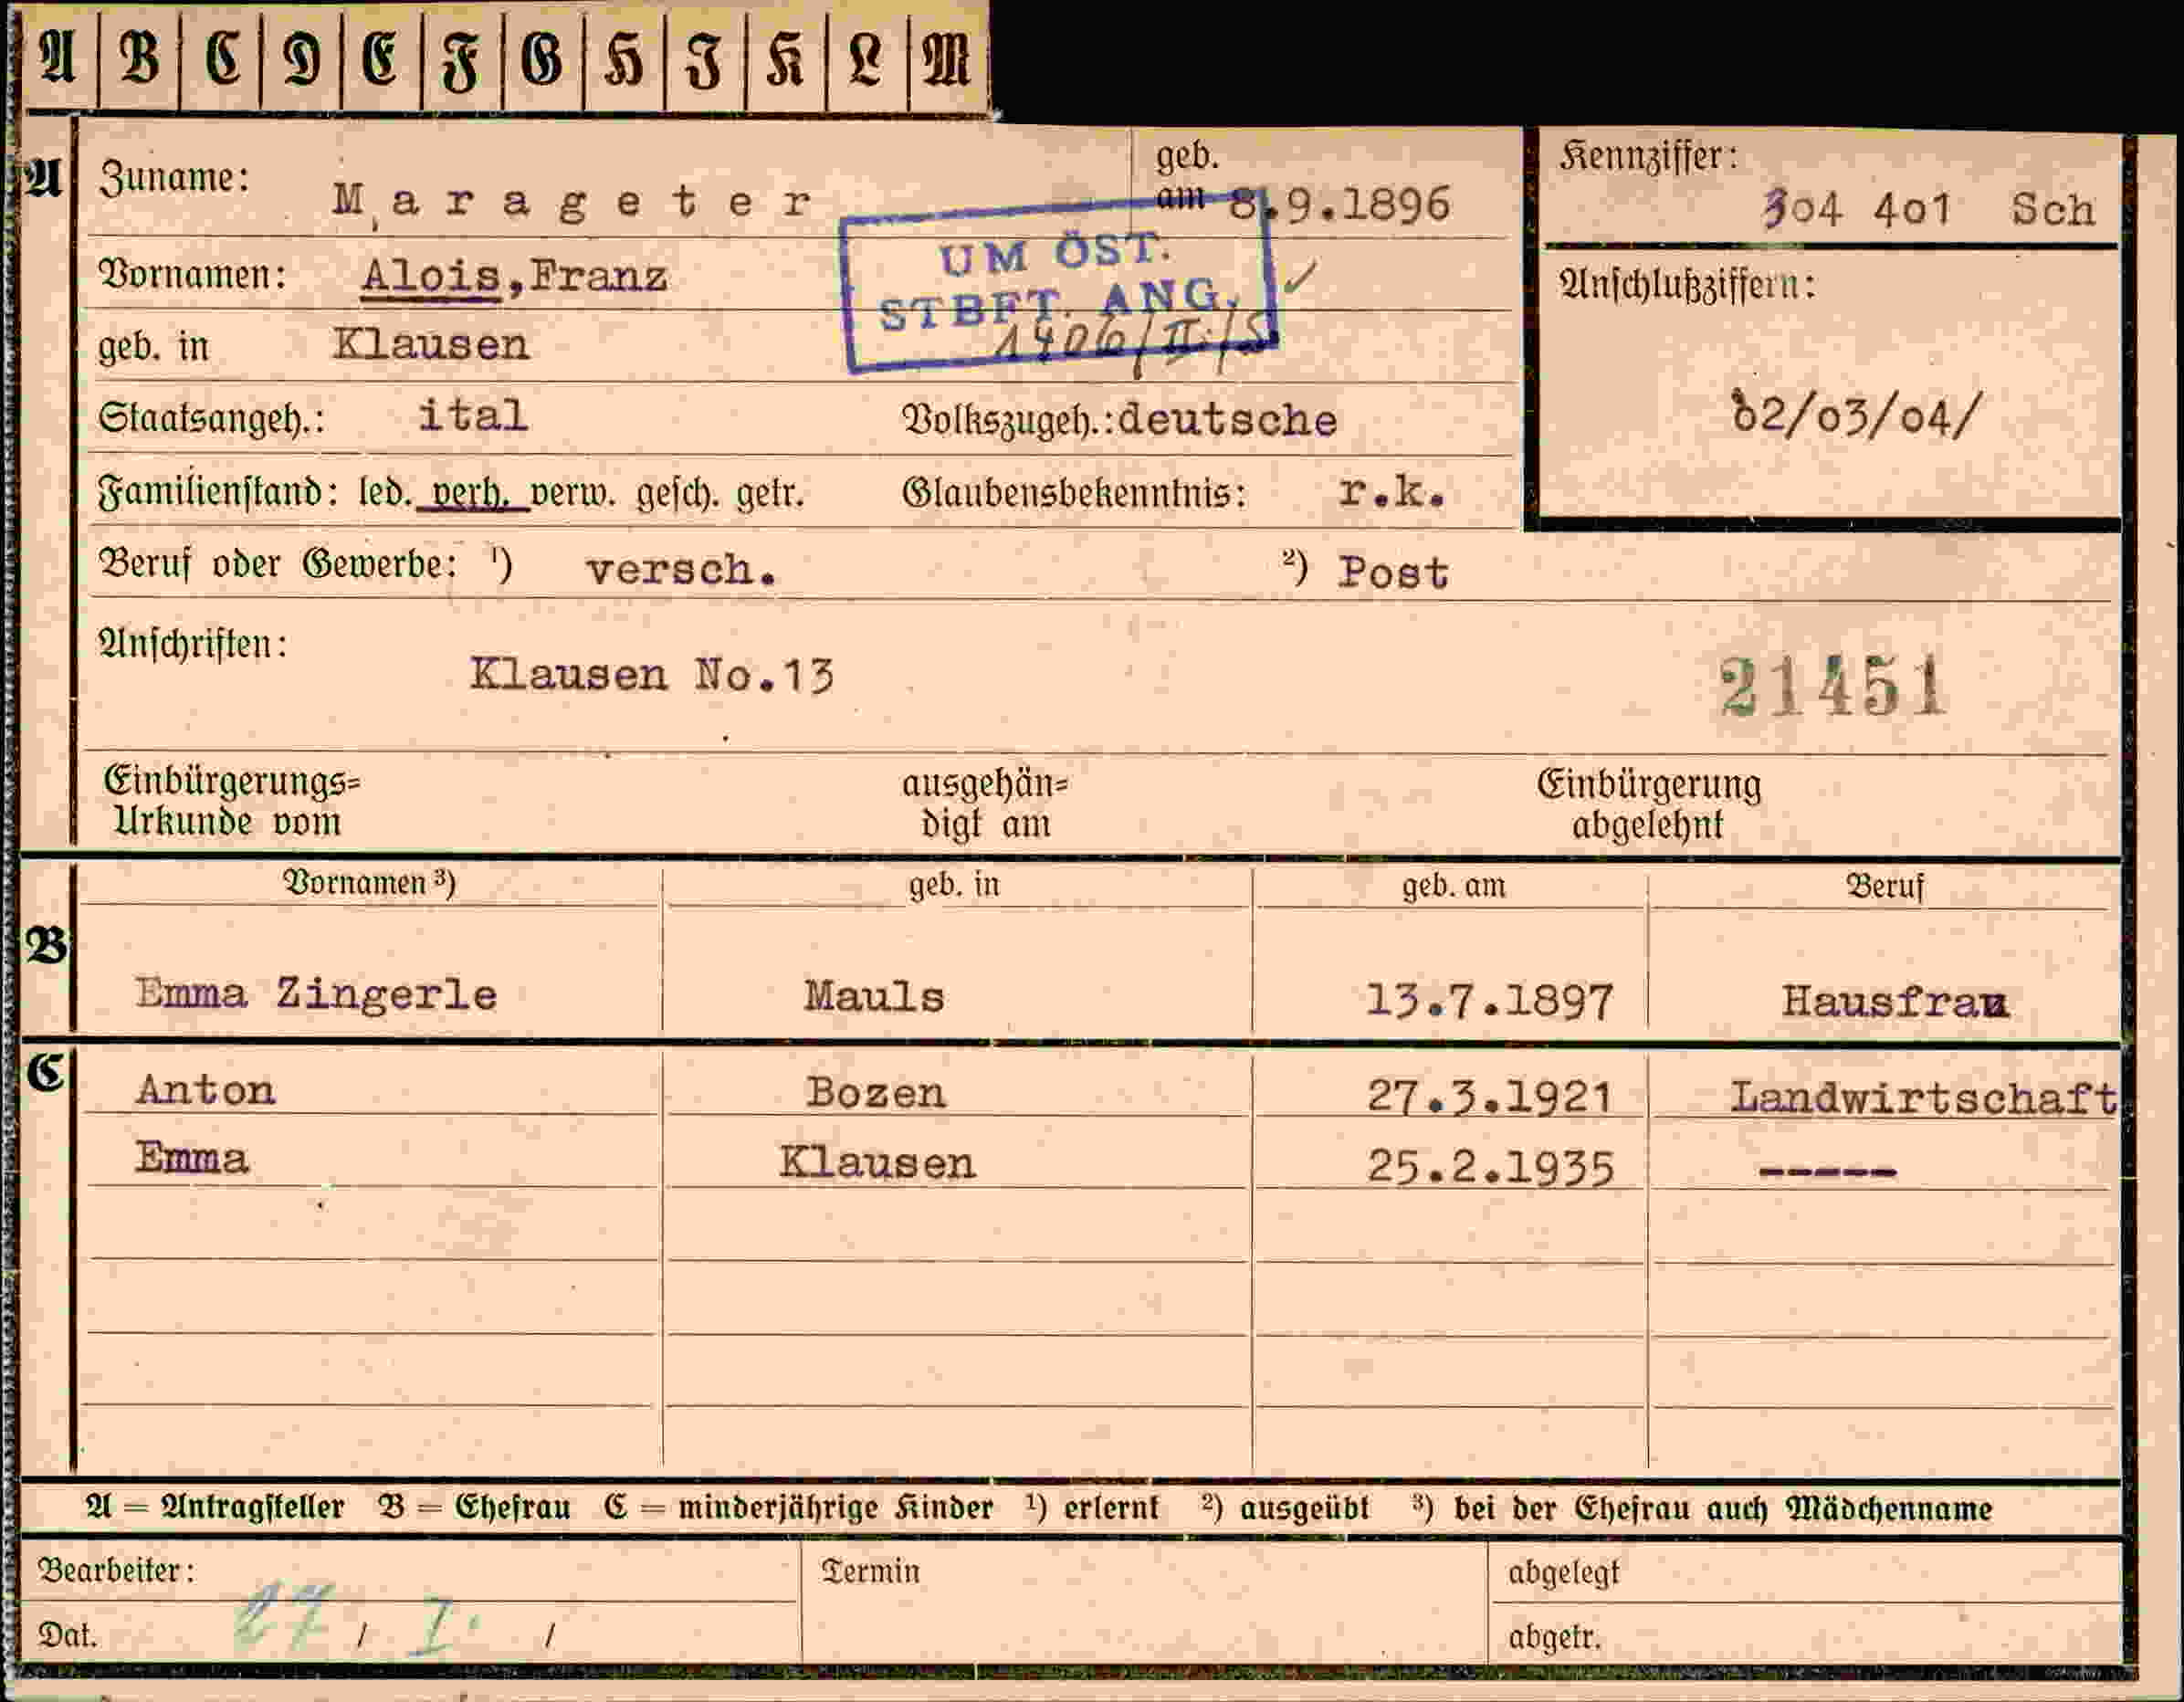 A B C D E F G H I K L M
A Zuname: Marageter geb. am 8.9.1896
Kennziffer: 304 401 Sch
UM ÖST. STBFT. ANG.
1406/II/S
Vornamen: Alois,Franz
Anschlußziffern:
02/03/04/
geb. in Klausen
Staatsangeh.: ital Volkszugeh.: deutsche
Familienstand: led. verh. verw. gesch. getr. Glaubensbekenntnis: r.k.
Beruf oder Gewerbe: ¹) versch. ²) Post
Anschriften:
Klausen No.13
21451
Einbürgerungs=
Urkunde vom
ausgehän=
digt am
Einbürgerung
abgelehnt
B Vornamen ³) geb. in geb. am Beruf
Emma Zingerle Mauls 13.7.1897 Hausfrau
C Anton Bozen 27.3.1921 Landwirtschaft
Emma Klausen 25.2.1935 -----
A = Antragsteller B = Ehefrau C = minderjährige Kinder ¹) erlernt ²) ausgeübt ³) bei der Ehefrau auch Mädchenname
Bearbeiter: Termin abgelegt
Dat. 27 / I. / abgetr.